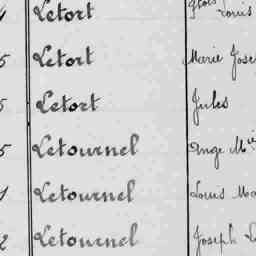 Letort Louis
Letort Marie Jose
5 Letort Jules
5 Letournel Ange Mie
1 Letournel Louis Ma
2 Letournel Joseph L